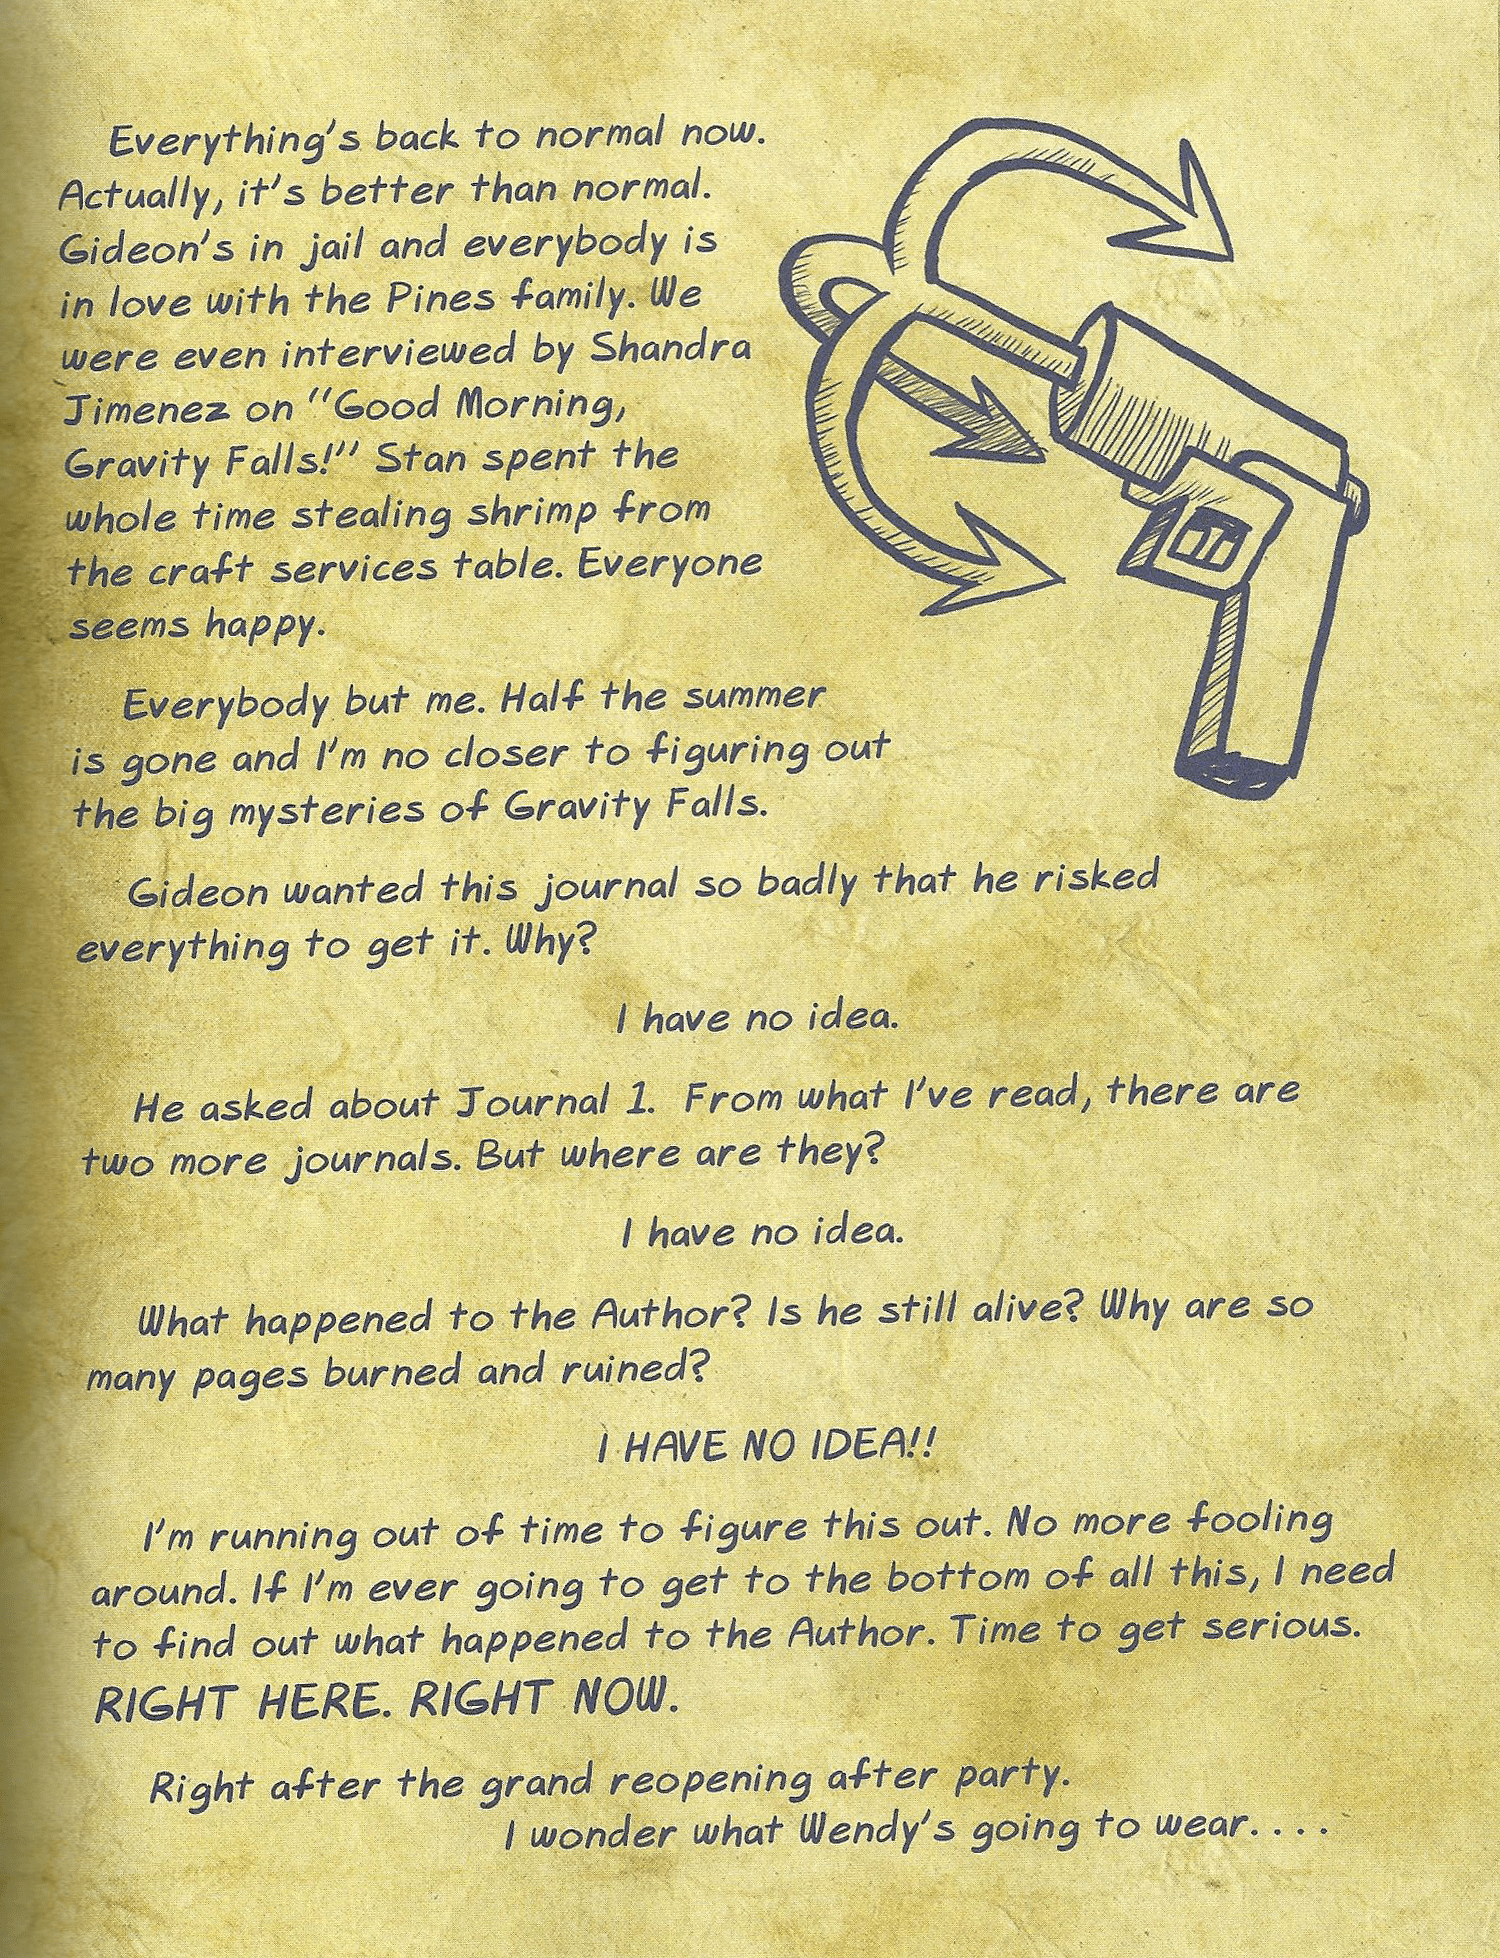 Everything's back to normal now.
Actually, it's better than normal.
Gideon's in jail and everybody is
in love with the Pines family. We
were even interviewed by Shandra
Jimenez on "Good Morning,
Gravity Falls!" Stan spent the
whole time stealing shrimp from
the craft services table. Everyone
seems happy.
Everybody but me. Half the summer
is gone and I'm no closer to figuring out
the big mysteries of Gravity Falls.
Gideon wanted this journal so badly that he risked
everything to get it. Why?
I have no idea.
He asked about Journal 1. From what I've read, there are
two more journals. But where are they?
I have no idea.
What happened to the Author? Is he still alive? Why are so
many pages burned and ruined?
I HAVE NO IDEA!!
I'm running out of time to figure this out. No more fooling
around. If I'm ever going to get to the bottom of all this, I need
to find out what happened to the Author. Time to get serious.
RIGHT HERE. RIGHT NOW.
Right after the grand reopening after party.
I wonder what Wendy's going to wear....